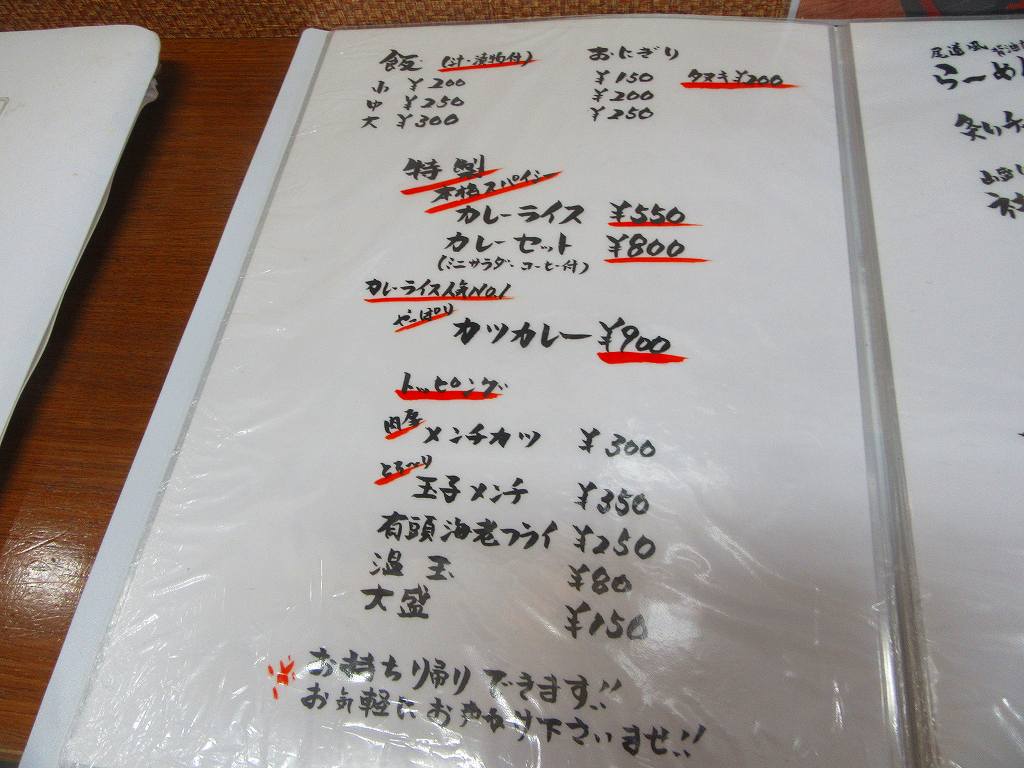 飯 (汁・漬物付)
小 ¥200
中 ¥250
大 ¥300
おにぎり
¥150 タヌキ¥200
¥200
¥250
特製
本格スパイシー
カレーライス ¥550
カレーセット ¥800
(ミニサラダ・コーヒー付)
カレーライス人気NO.1
やっぱり
カツカレー ¥900
トッピング
肉厚
メンチカツ ¥300
とろ〜り
玉子メンチ ¥350
有頭海老フライ ¥250
温玉 ¥80
大盛 ¥150
※お持ち帰りできます!!
お気軽にお声かけ下さいませ!!
尾道風 背油
らーめん
炙りチ